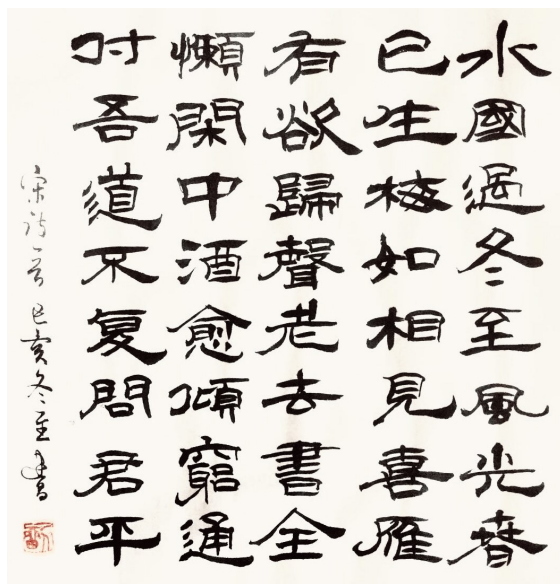 水國過冬至風光春
已生梅如相見喜雁
有欲歸聲老去書全
懶閑中酒愈傾窮通
付吾道不复問君平
宋诗一首 己亥冬至 書